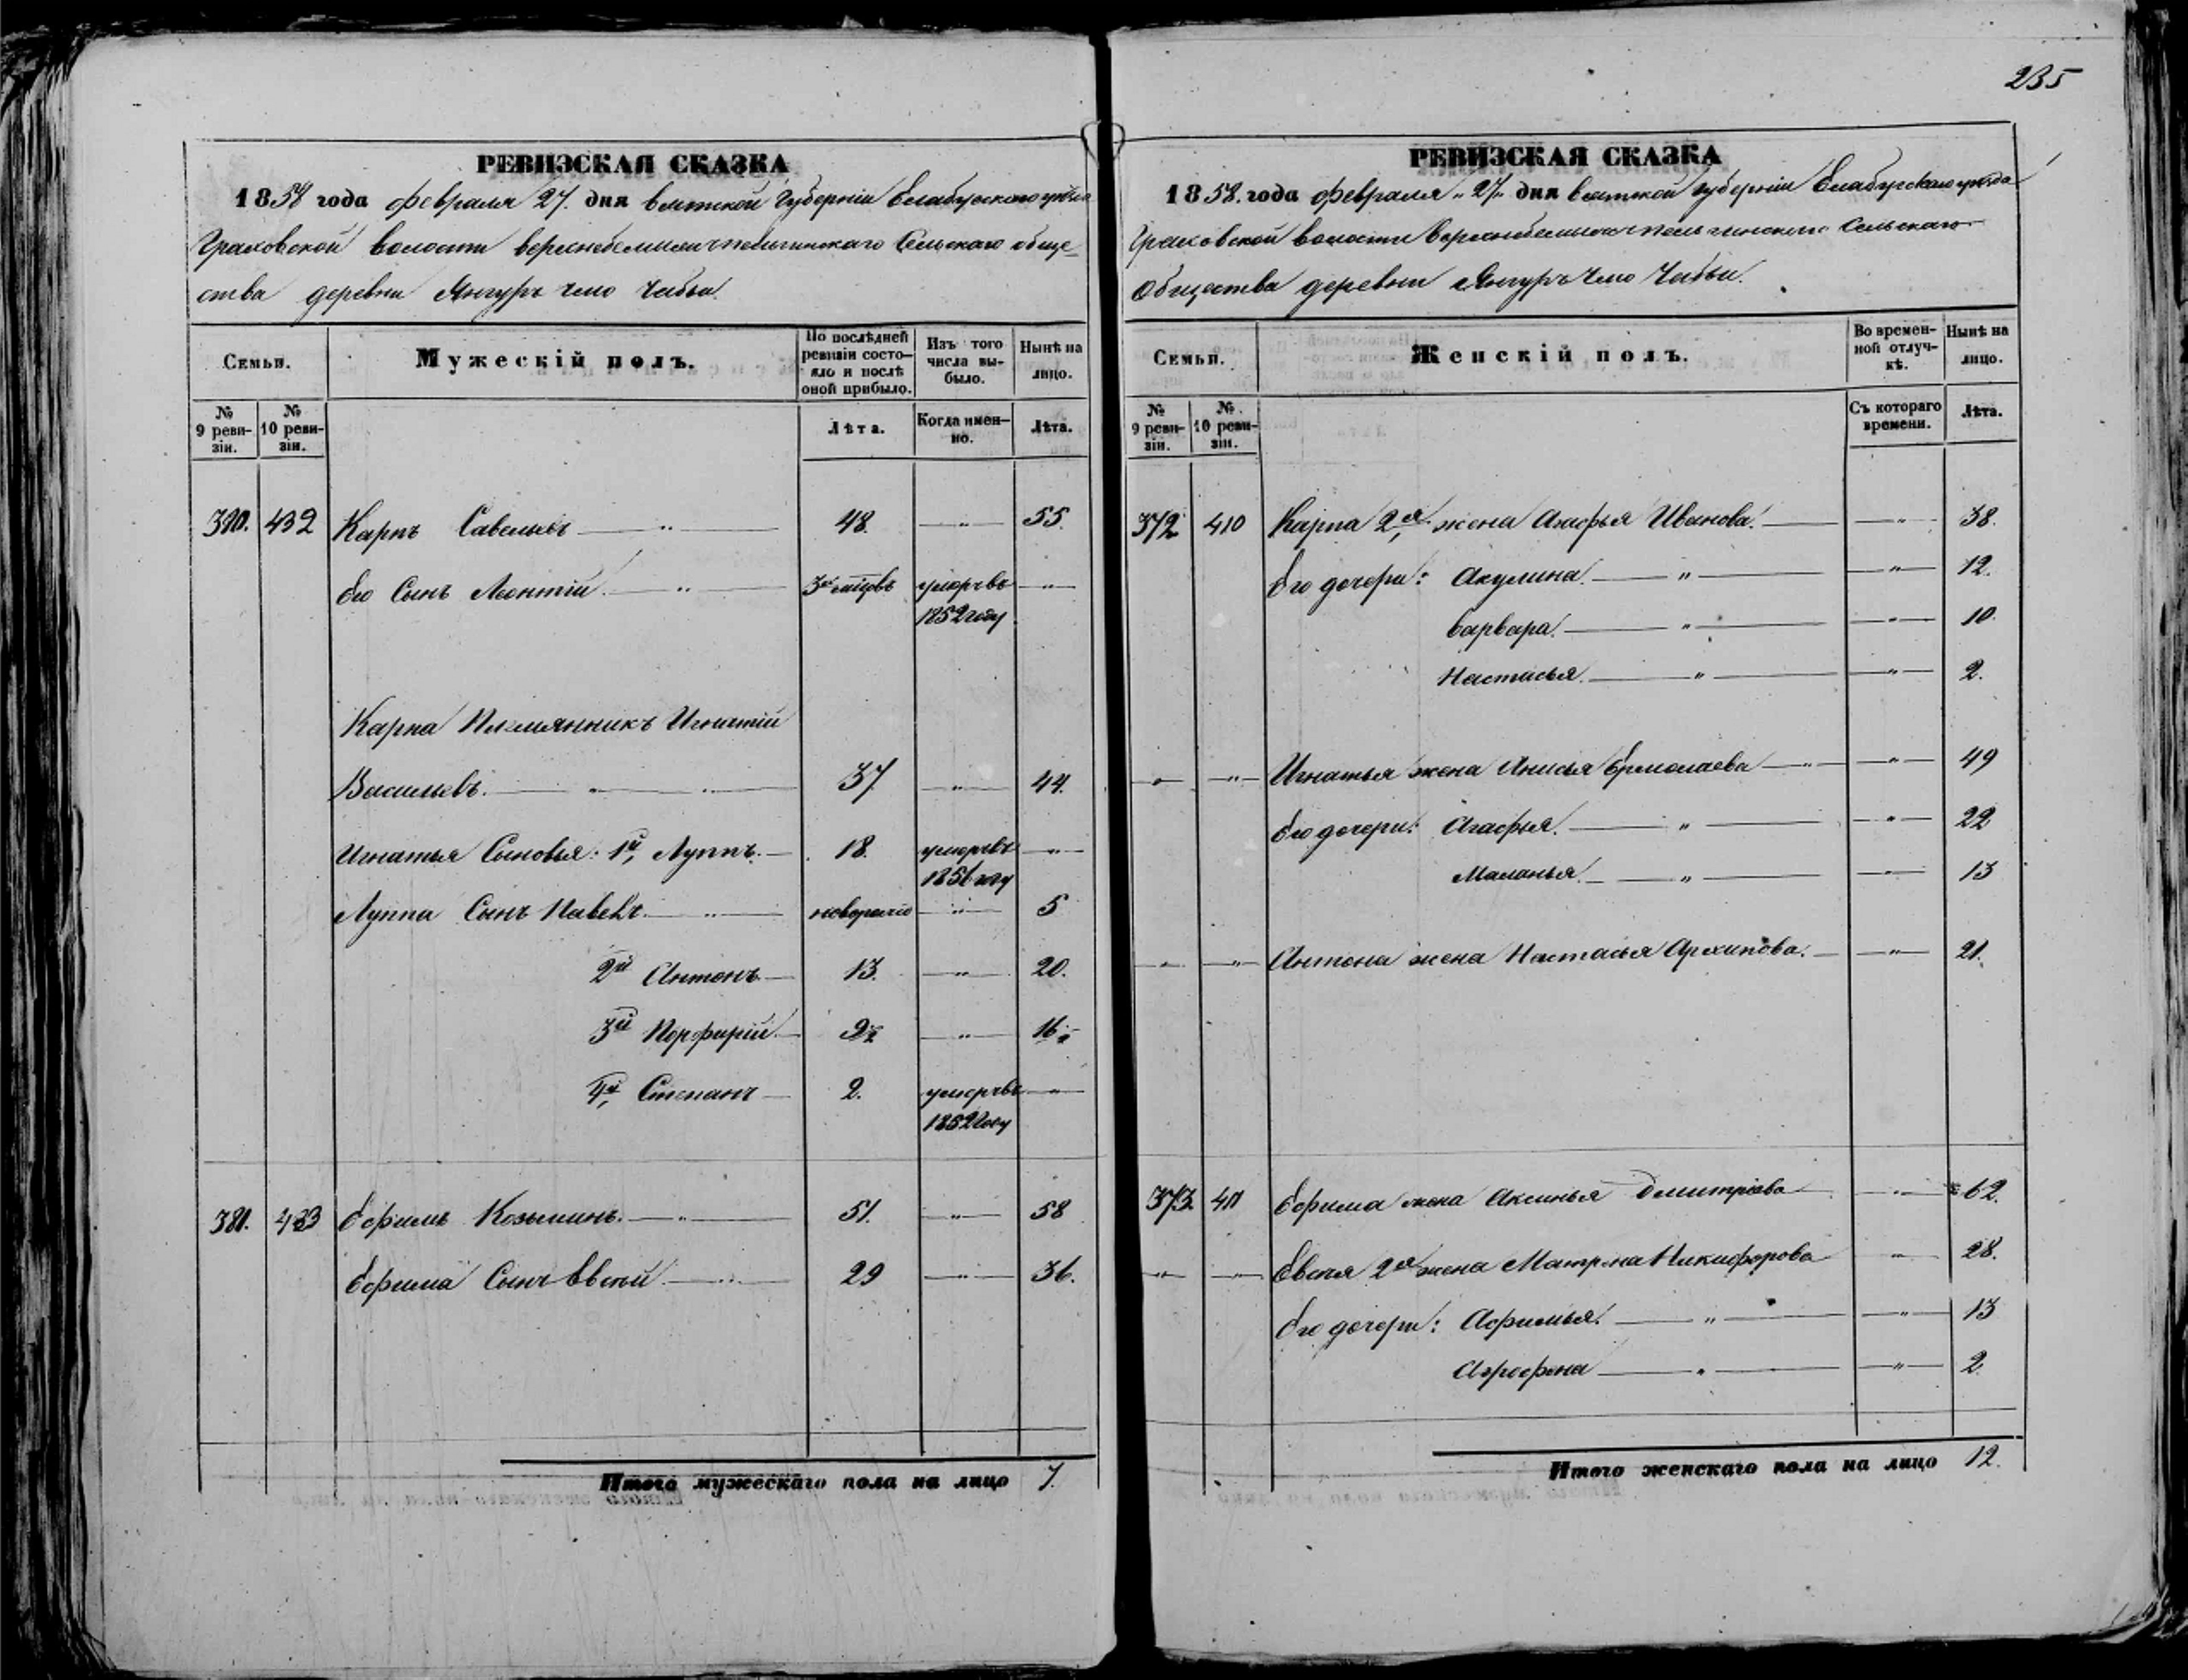 235
РЕВИЗСКАЯ СКАЗКА
1858 года февраля 27. дня Вятской Губерніи Елабужскаго уѣзда
Граховской волости Сельскаго обще-
ства деревни Янгуръ Чемо Чабьи.
Семьи.
Мужескій полъ.
По послѣдней ревизіи состояло и послѣ оной прибыло.
Изъ того числа выбыло.
Нынѣ на лицо.
№ 9 ревизіи.
№ 10 ревизіи.
Лѣта.
Когда именно.
Лѣта.
380. 432 Карпъ Савельевъ 48. 55.
Его Сынъ Леонтій. 3 умеръ въ
1852 году
Карпа Племянникъ Игнатій
Васильевъ. 37 44.
Игнатья Сыновья: 1й Луппъ. 18. умеръ въ
1856 году
Луппа Сынъ Павелъ. 5
2й Антонъ 13. 20.
3й Порфирій 9 16
4й Степанъ 2. умеръ въ
1852 году
381. 433 Ефимъ Козьминъ. 51. 58
Ефима Сынъ Евсей. 29 36.
Итого мужескаго пола на лицо 7.
РЕВИЗСКАЯ СКАЗКА
1858. года февраля 27. дня Вятской губерніи Елабужскаго уѣзда
Граховской волости Сельскаго
Общества деревни Янгуръ Чемо Чабьи.
Семьи.
Женскій полъ.
Во временной отлучкѣ.
Нынѣ на лицо.
№ 9 ревизіи.
№ 10 ревизіи.
Съ котораго времени.
Лѣта.
372 410 Карпа 2я жена Агафья Иванова. 38.
Его дочери: Акулина. 12.
Варвара. 10.
Настасья. 2.
Игнатья жена Анисья Ермолаева 49
Его дочери: Агафья. 22
Маланья. 13
Антона жена Настасья Архипова. 21.
373 411 Ефима жена Аксинья Дмитріева 62.
Евсея 2я жена Матрена Никифорова 28.
Его дочери: Афимья. 13
Аграфена 2.
Итого женскаго пола на лицо 12.